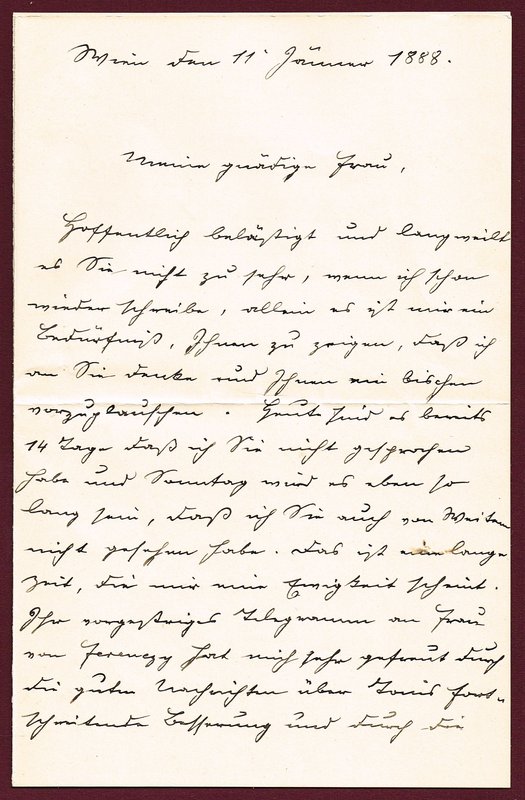 Wien den 11' Jänner 1888.
Meine gnädige Frau,
Hoffentlich belästigt und langweilt
es Sie nicht zu sehr, wenn ich schon
wieder schreibe, allein es ist mir ein
Bedürfniß, Ihnen zu zeigen, daß ich
an Sie denke und Ihnen ein bischen
vorzuplauschen. Heute sind es bereits
14 Tage daß ich Sie nicht gesprochen
habe und Sonntag wird es eben so
lang sein, daß ich Sie auch von Weitem
nicht gesehen habe. Das ist eine lange
Zeit, die mir eine Ewigkeit scheint.
Ihr vorgestriges Telegramm an Frau
von Ferenczy hat mich sehr gefreut durch
die guten Nachrichten über Tonis fort-
schreitende Besserung und durch die